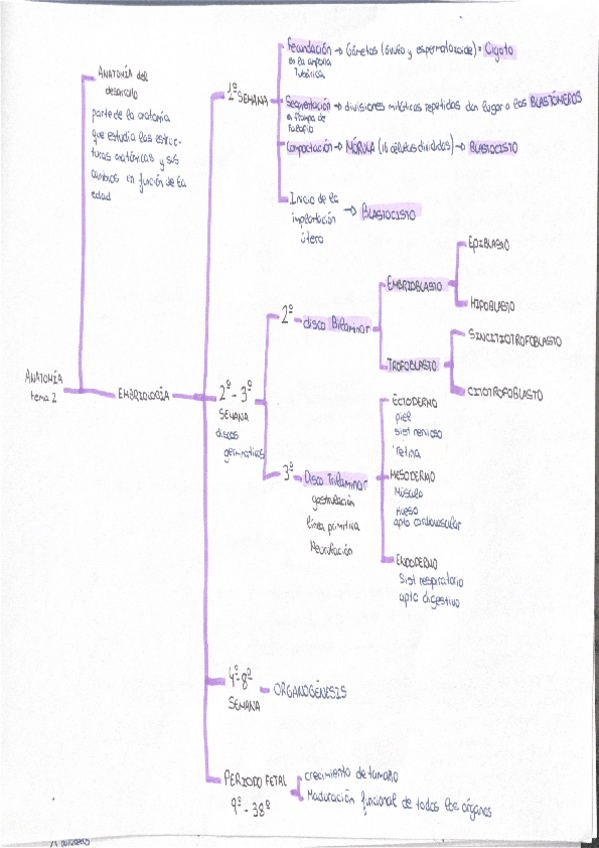 ANATOMÍA
tema 2
ANATOMÍA del
desarrollo
parte de la anatomía
que estudia las estruc-
turas anatómicas y sus
cambios en función de la
edad
EMBRIOLOGÍA
1ª SEMANA
Fecundación → Gametos (óvulo y espermatozoide) = Cigoto
en la ampolla
Tubárica
Segmentación → divisiones mitóticas repetidas dan lugar a los BLASTÓMEROS
en trompa de
falopio
Compactación → MÓRULA (16 células divididas) → BLASTOCISTO
Inicio de la
implantación
útero
→ BLASTOCISTO
2ª - 3ª
SEMANA
discos
germinativos
2ª - disco Bilaminar
EMBRIOBLASTO
EPIBLASTO
HIPOBLASTO
TROFOBLASTO
SINCITIOTROFOBLASTO
CITOTROFOBLASTO
3ª - Disco Trilaminar
gastrulación
línea primitiva
Neurulación
ECTODERMO
piel
sist nervioso
retina
MESODERMO
Músculo
Hueso
apto cardiovascular
ENDODERMO
Sist respiratorio
apto digestivo
4ª-8ª
SEMANA
- ORGANOGÉNESIS
PERIODO FETAL
9ª - 38ª
crecimiento de tamaño
Maduración funcional de todos los órganos